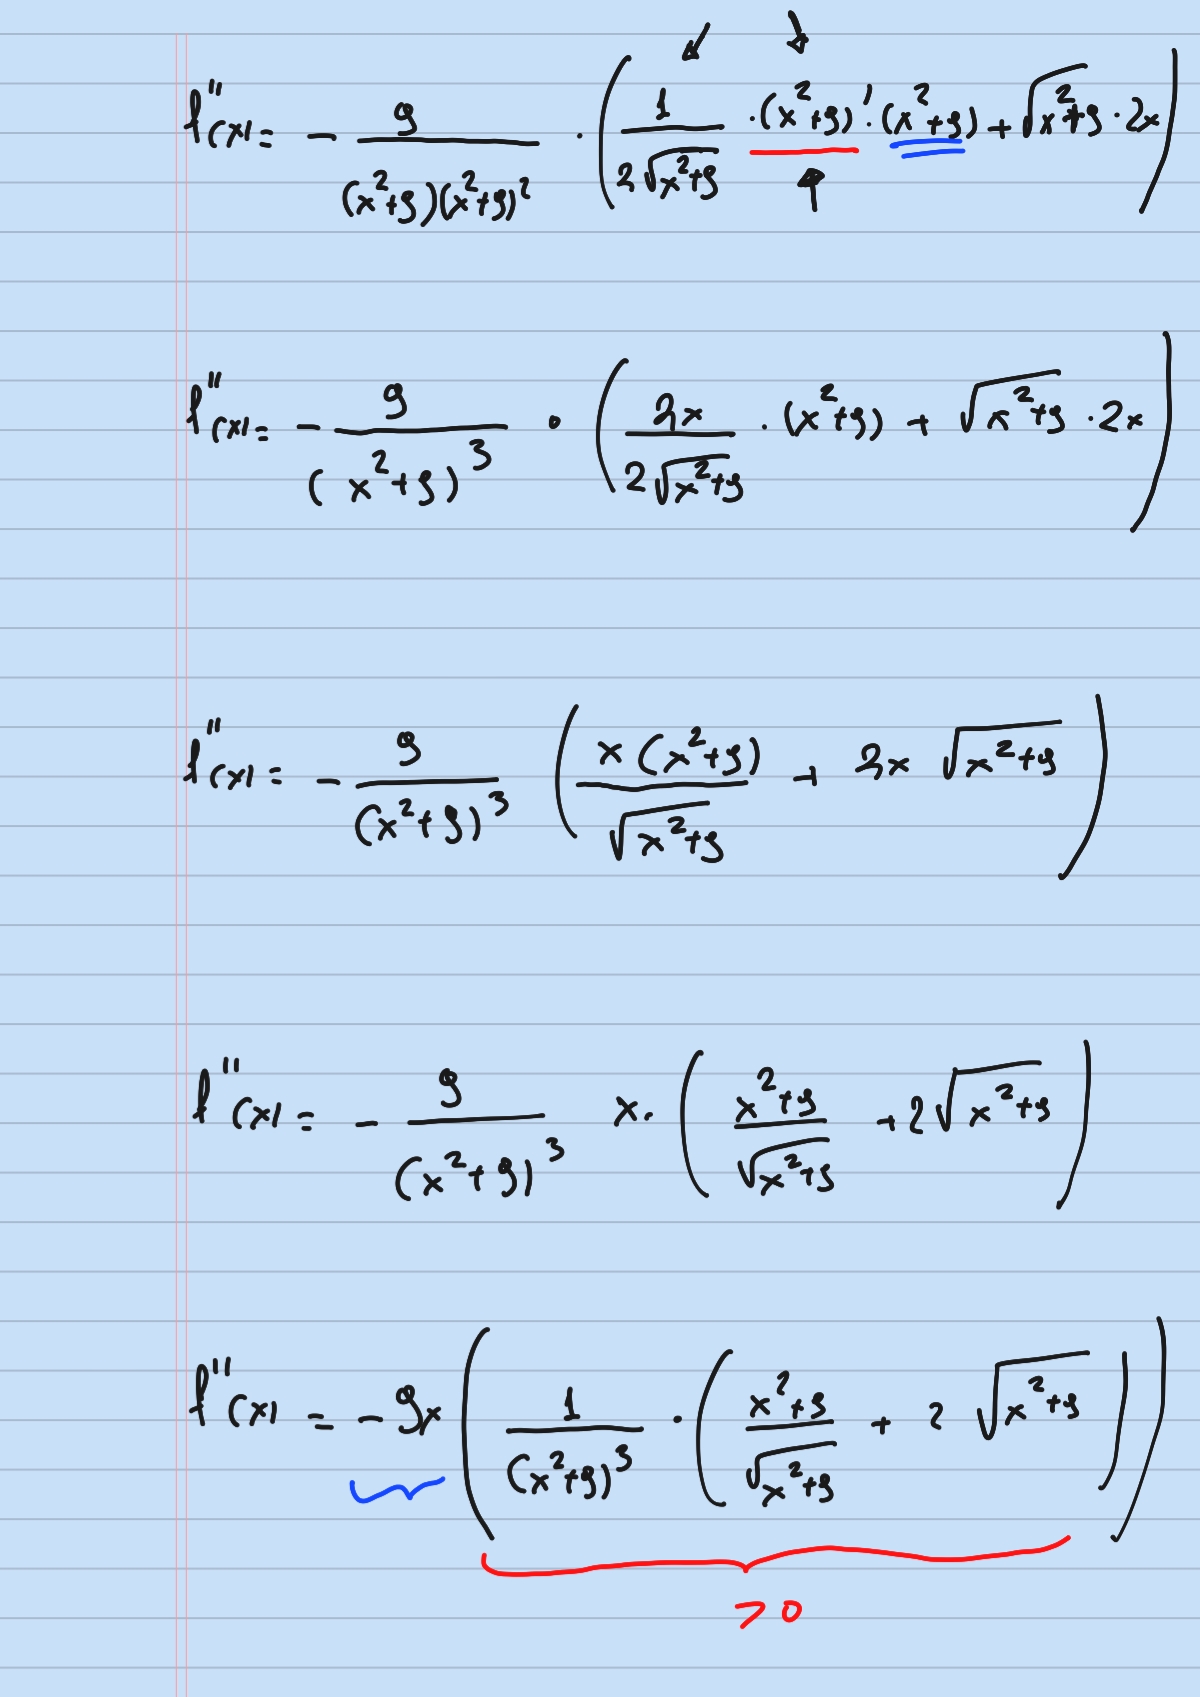 f''(x) = - 9/((x²+9)(x²+9)²) · (1/(2√(x²+9)) · (x²+9)' · (x²+9) + √(x²+9) · 2x)
f''(x) = - 9/(x²+9)³ · (2x/(2√(x²+9)) · (x²+9) + √(x²+9) · 2x)
f''(x) = - 9/(x²+9)³ (x(x²+9)/√(x²+9) + 2x √(x²+9))
f''(x) = - 9/(x²+9)³ x · ((x²+9)/√(x²+9) + 2√(x²+9))
f''(x) = - 9x (1/(x²+9)³ · ((x²+9)/√(x²+9) + 2 √(x²+9)))
> 0